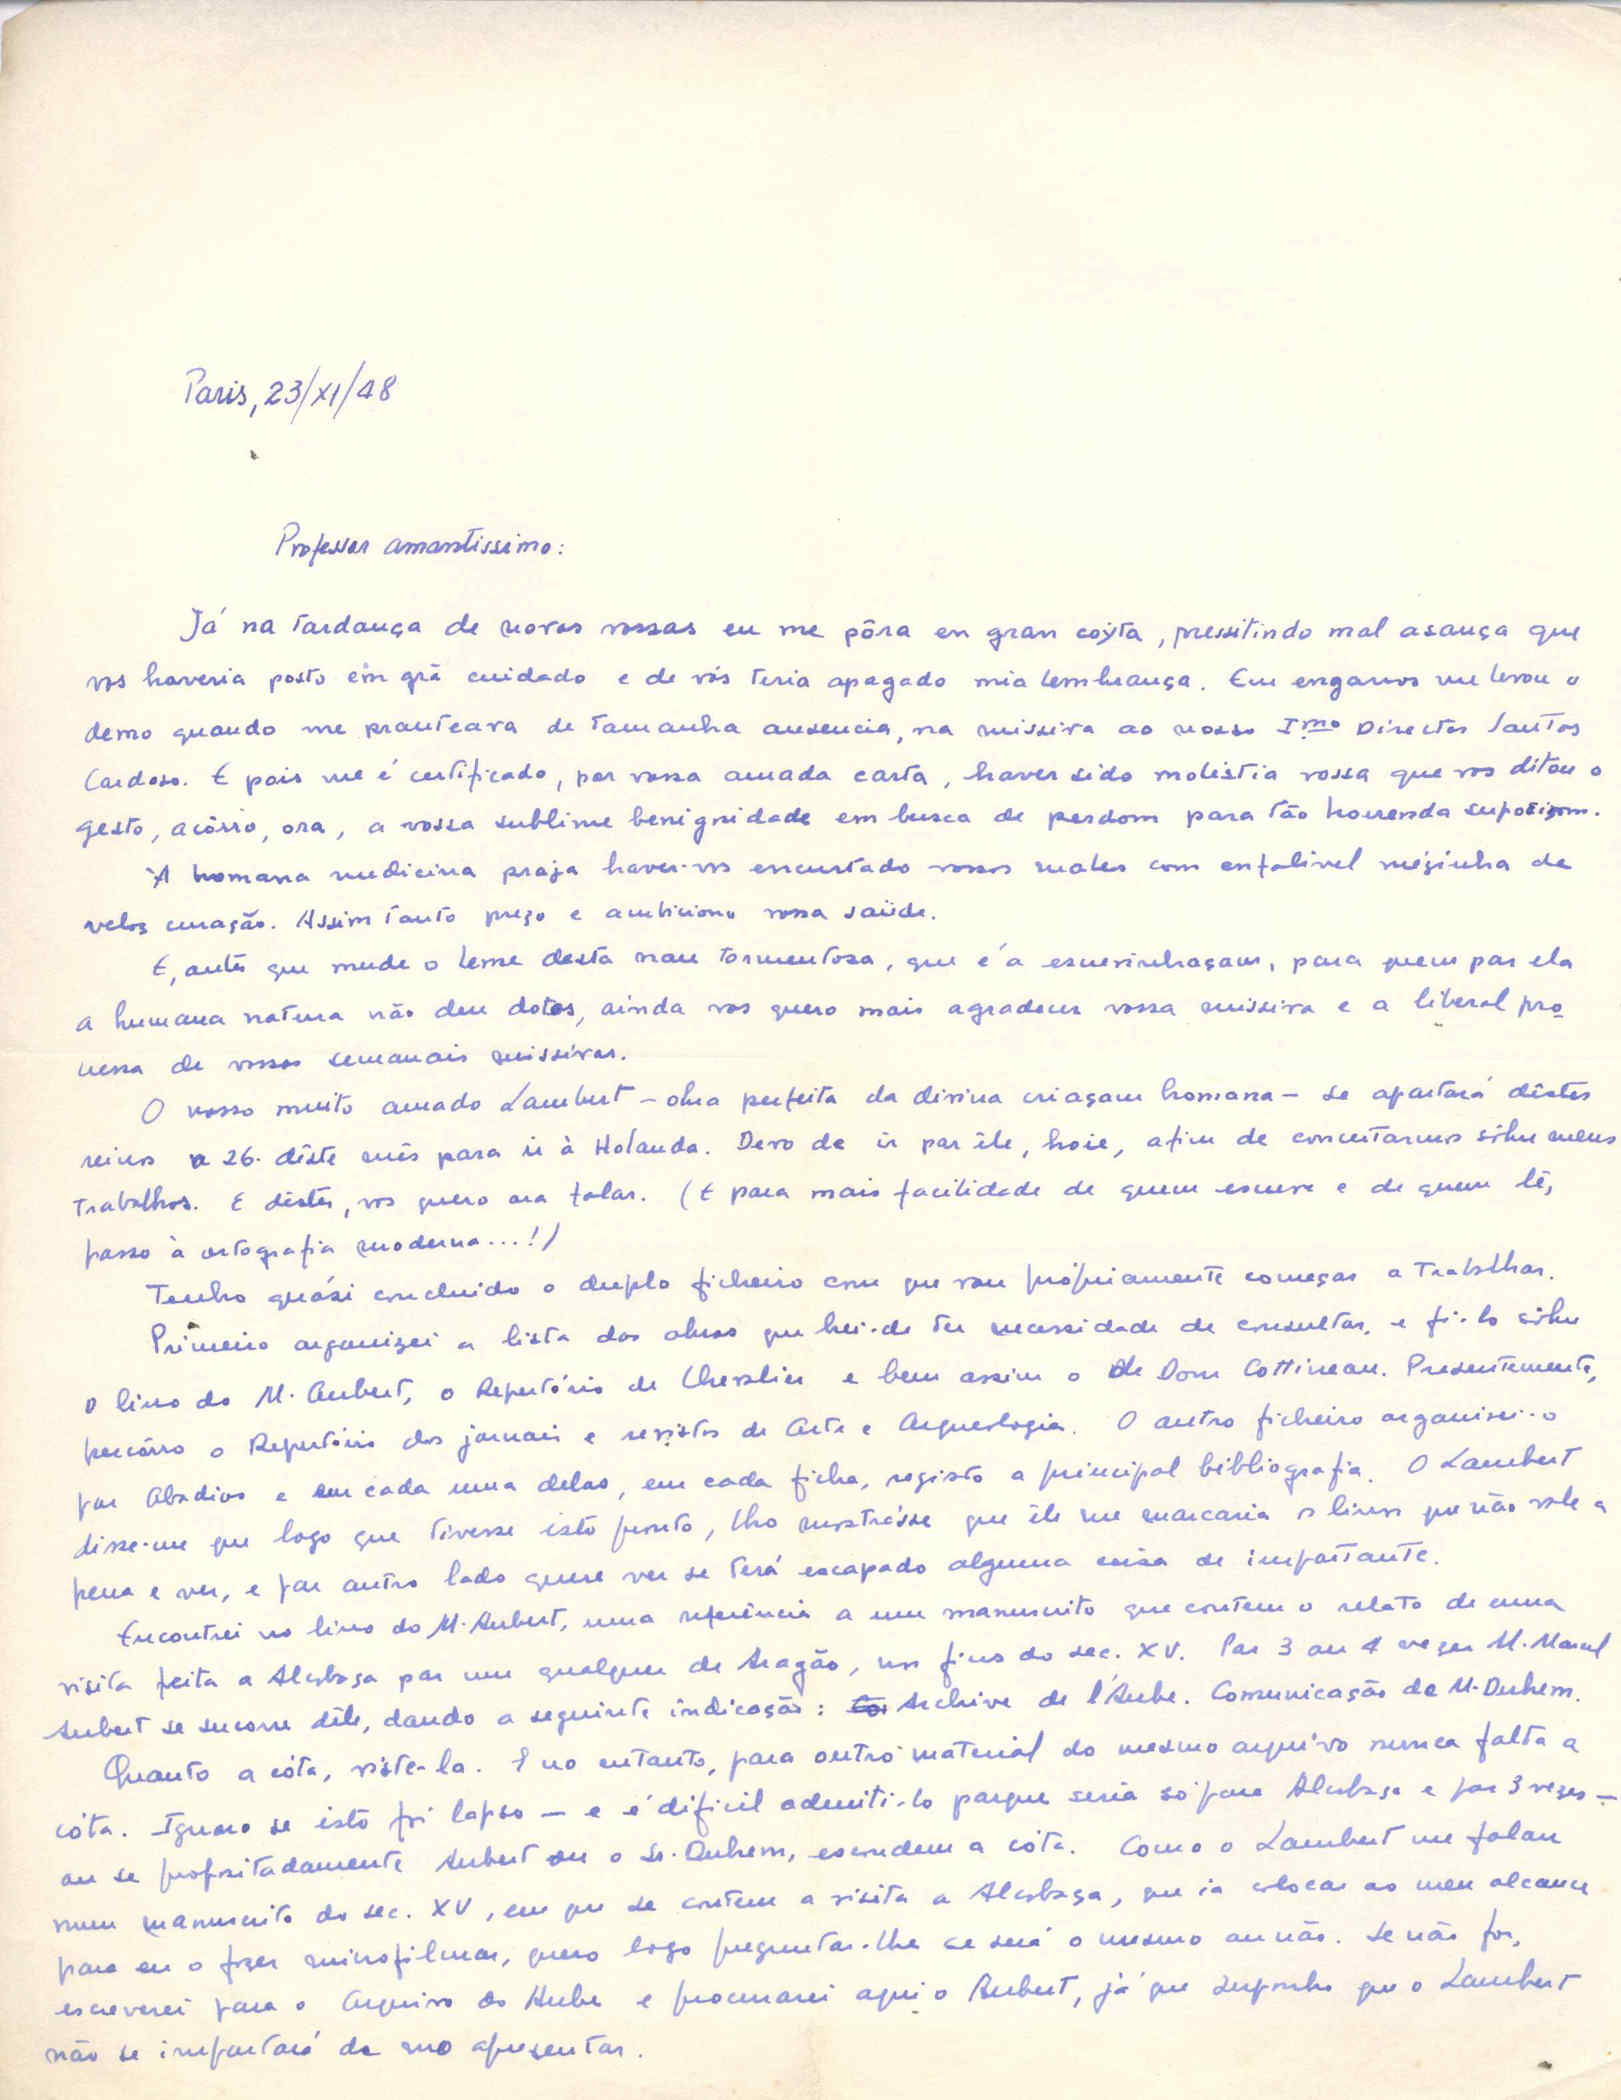 Paris, 23/XI/48
Professor amantissimo:
Já na tardança de novas vossas eu me pôra en gran coyta, pressitindo mal asança que
vos haveria posto ein grã cuidado e de vós teria apagado mia lembrança. Em enganos me levou o
demo quando me pranteava de tamanha ausencia, na missiva ao nosso Imo Director Santos
Cardoso. E pois me é certificado, por vossa amada carta, haver sido moléstia vossa que vos ditou o
gesto, acôrro, ora, a vossa sublime benignidade em busca de perdom para tão horrenda suposiçom.
A homana medicina praja haver-vos encurtado vossos males com enfalivel mézinha de
veloz curação. Assim tanto prezo e ambiciono vossa saüde.
E, antes que mude o leme desta nau tormentosa, que é a escrevinhaçam, para quem par ela
a humana natura não deu dotes, ainda vos quero mais agradecer vossa missiva e a liberal pro
messa de vossas semanais missivas.
O nosso muito amado Lambert – obra perfeita da divina criaçam homana – se apartará dêstes
reinos a 26 dêste mês para ir à Holanda. Devo de ir par êle, hoie, afim de concertarmos sôbre meus
trabalhos. E dêstes, vos quero ora falar. (E para mais facilidade de quem escreve e de quem lê,
passo à ortografia moderna...!)
Tenho quási concluido o duplo ficheiro com que vou própriamente começar a trabalhar.
Primeiro organizei a lista das obras que hei-de ter necessidade de consultar, e fi-lo sôbre
o livro do M. Aubert, o Repertório de Chevalier e bem assim o de Dom Cottineau. Presentemente,
percórro o Repertório dos jornais e revistas de Arte e Arqueologia. O outro ficheiro organisei-o
por Abadias e em cada uma delas, em cada ficha, registo a principal bibliografia. O Lambert
disse-me que logo que tivesse isto pronto, lho mostrásse que êle me marcaria os livros que não vale a
pena e ver, e por outro lado quere ver se terá escapado alguma coisa de importante.
Encontrei no livro do M. Aubert, uma referência a um manuscrito que contem o relato de uma
visita feita a Alcobaça par um qualquer de Aragão, nos fins do sec. XV. Par 3 ou 4 vezes M. Marcel
Aubert se socorre dêle, dando a seguinte indicação: Archive de l'Aube. Comunicação de M. Duhem.
Quanto a cóta, viste-la. E no entanto, para outro material do mesmo arquivo nunca falta a
cóta. Ignoro se isto foi lapso – e é dificil admiti-lo porque seria só para Alcobaça e por 3 vezes –
ou se propositadamente Aubert ou o Sr. Duhem, escondem a cóta. Como o Lambert me falou
num manuscrito do sec. XV, em que se contem a visita a Alcobaça, que ia colocar ao meu alcance
para eu o fazer microfilmar, quero logo preguntar-lhe se será o mesmo ou não. Se não for,
escreverei para o Arquivo do Aube e procurarei aqui o Aubert, já que suponho que o Lambert
não se importará de mo apresentar.